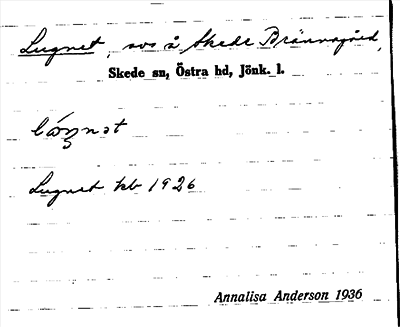 Lugnet, avs å Skede Brännagård,
Skede sn, Östra hd, Jönk. l.
Lugnet kb 1926
Annalisa Anderson 1936